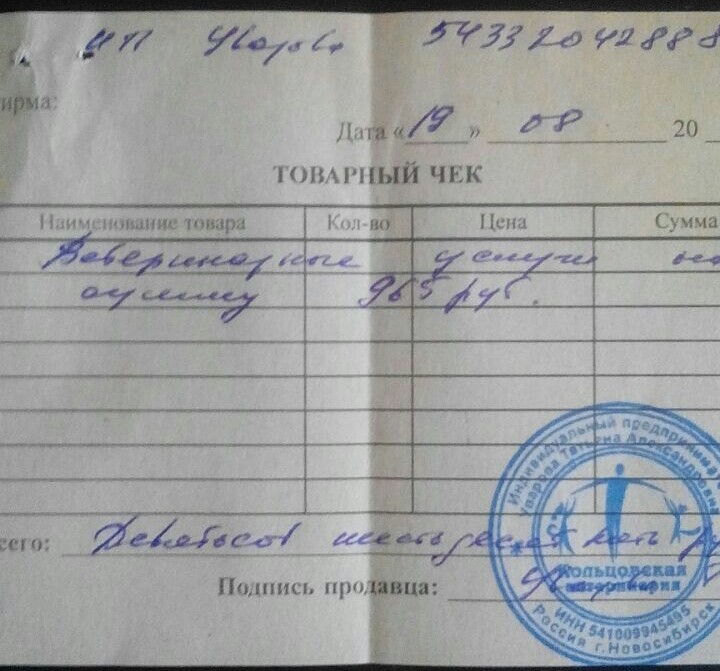 ИП Уварова 54332042888
ирма:
Дата «19» 08 20
ТОВАРНЫЙ ЧЕК
Наименование товара Кол-во Цена Сумма
Ветеринарные услуги на
сумму 965 руб.
сего: Девятьсот шестьдесят пять р
Подпись продавца:
Индивидуальный предприниматель
Уварова Татьяна Александровна
Кольцовская
ветеринария
ИНН 541009945495
Россия г.Новосибирск